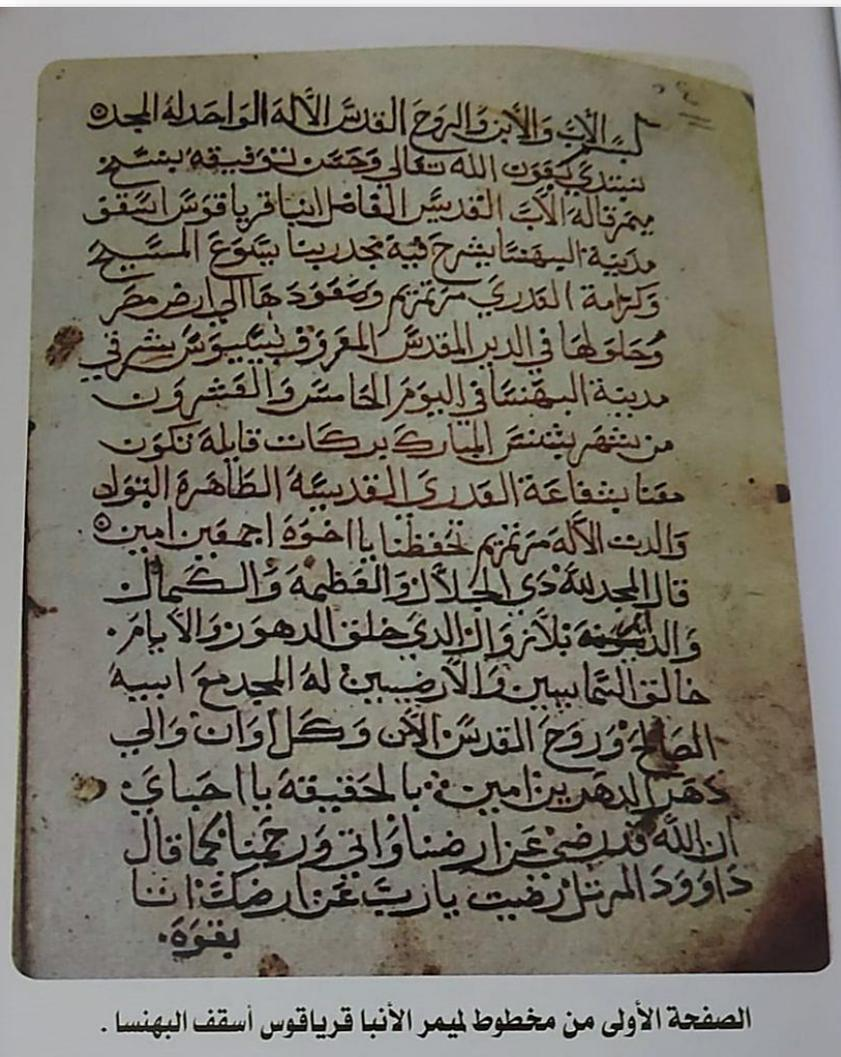 بسم الأب والابن والروح القدس الاله الواحد له المجد
نبتدي بعون الله تعالي وحسن توفيقه بنسخ
ميمر قاله الأب القديس الفاضل انبا قرياقوس اسقف
مدينة البهنسا يشرح فيه مجد ربنا يسوع المسيح
وكرامة العدري مرتمريم وصعودها الي ارض مصر
وحلولها في الدير المقدس المعروف شرقي
مدينة البهنسا في اليوم الخامس والعشرون
من شهر بشنس المبارك بركات قايله تكون
معنا بشفاعة العدري القديسه الطاهرة البتول
والدت الاله مرتمريم تحفظنا يا اخوه اجمعين امين
قال المجد لله ذي الجلال والعظمه والكمال
بلا زوال الذي خلق الدهور والايام.
خالق السمايين والارضيين له المجد مع ابيه
الصالح وروح القدس الان وكل اوان والي
دهر الدهرين امين بالحقيقه يا احباي
ان الله قد رضي عن ارضنا واتي ورحمنا كما قال
داوود المرتل رضيت يارب عن ارضك اننا
بقوة.
الصفحة الأولى من مخطوط لميمر الأنبا قرياقوس أسقف البهنسا .